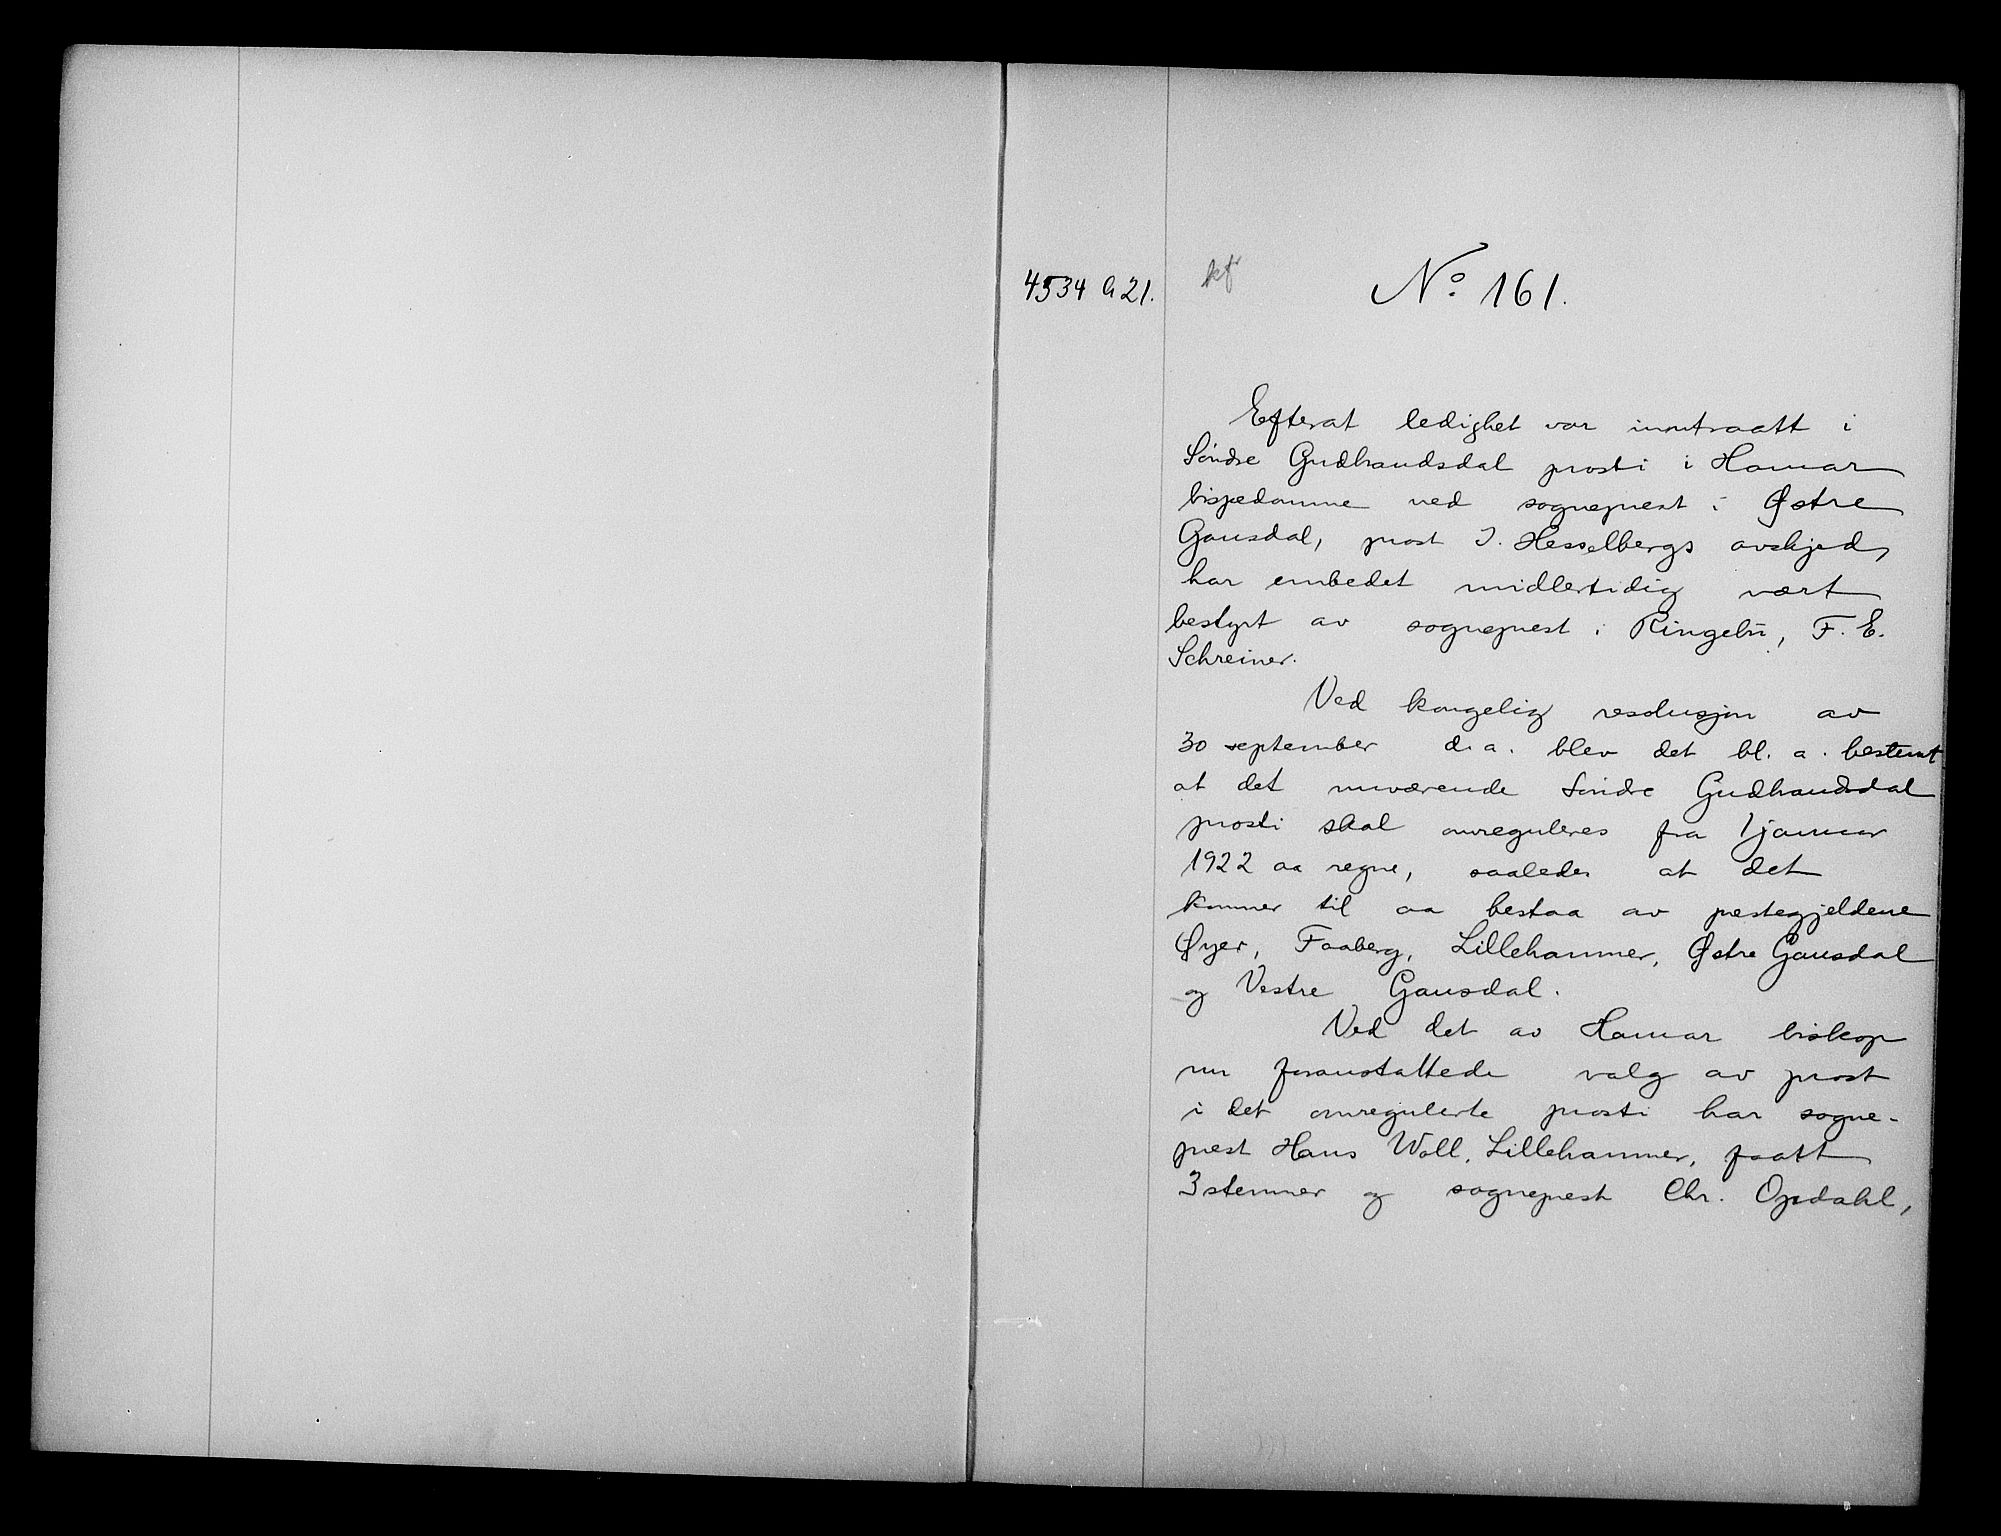 4534 A 21.
kfr
No 161.
Efterat ledighet var inntraatt i
Søndre Gudbrandsdal prosti i Hamar
bispedømme ved sogneprest i Østre
Gausdal, prost J. Hesselbergs avskjed,
har embedet midlertidig vært
bestyrt av sogneprest i Ringebu, F. E.
Schreiner.
Ved kongelig resolusjon av
30 september d. a. blev det bl. a. bestemt
at det nuværende Søndre Gudbrandsdal
prosti skal omreguleres fra 1 januar
1922 aa regne, saaledes at det
kommer til aa bestaa av prestegjeldene
Øyer, Faaberg, Lillehammer, Østre Gausdal
og Vestre Gausdal.
Ved det av Hamar biskop
nu foranstaltede valg av prost
i det omregulerte prosti har sogne-
prest Hans Woll, Lillehammer, faatt
3 stemmer og sogneprest Chr. Opdahl,